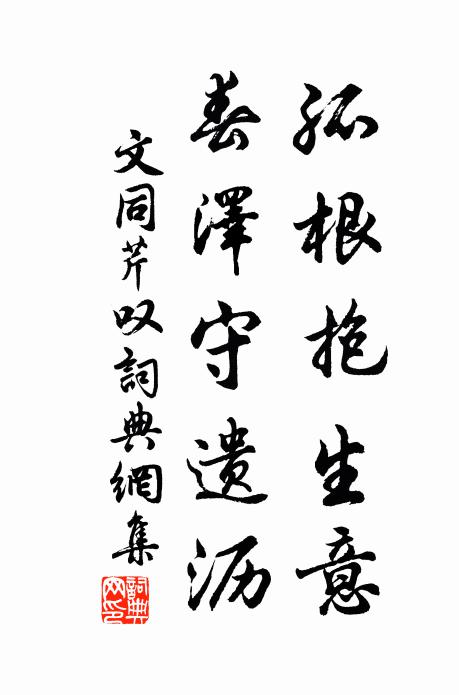 孤根抱生意
春澤守遗沥
文同芹叹詞典網集
詞典网印